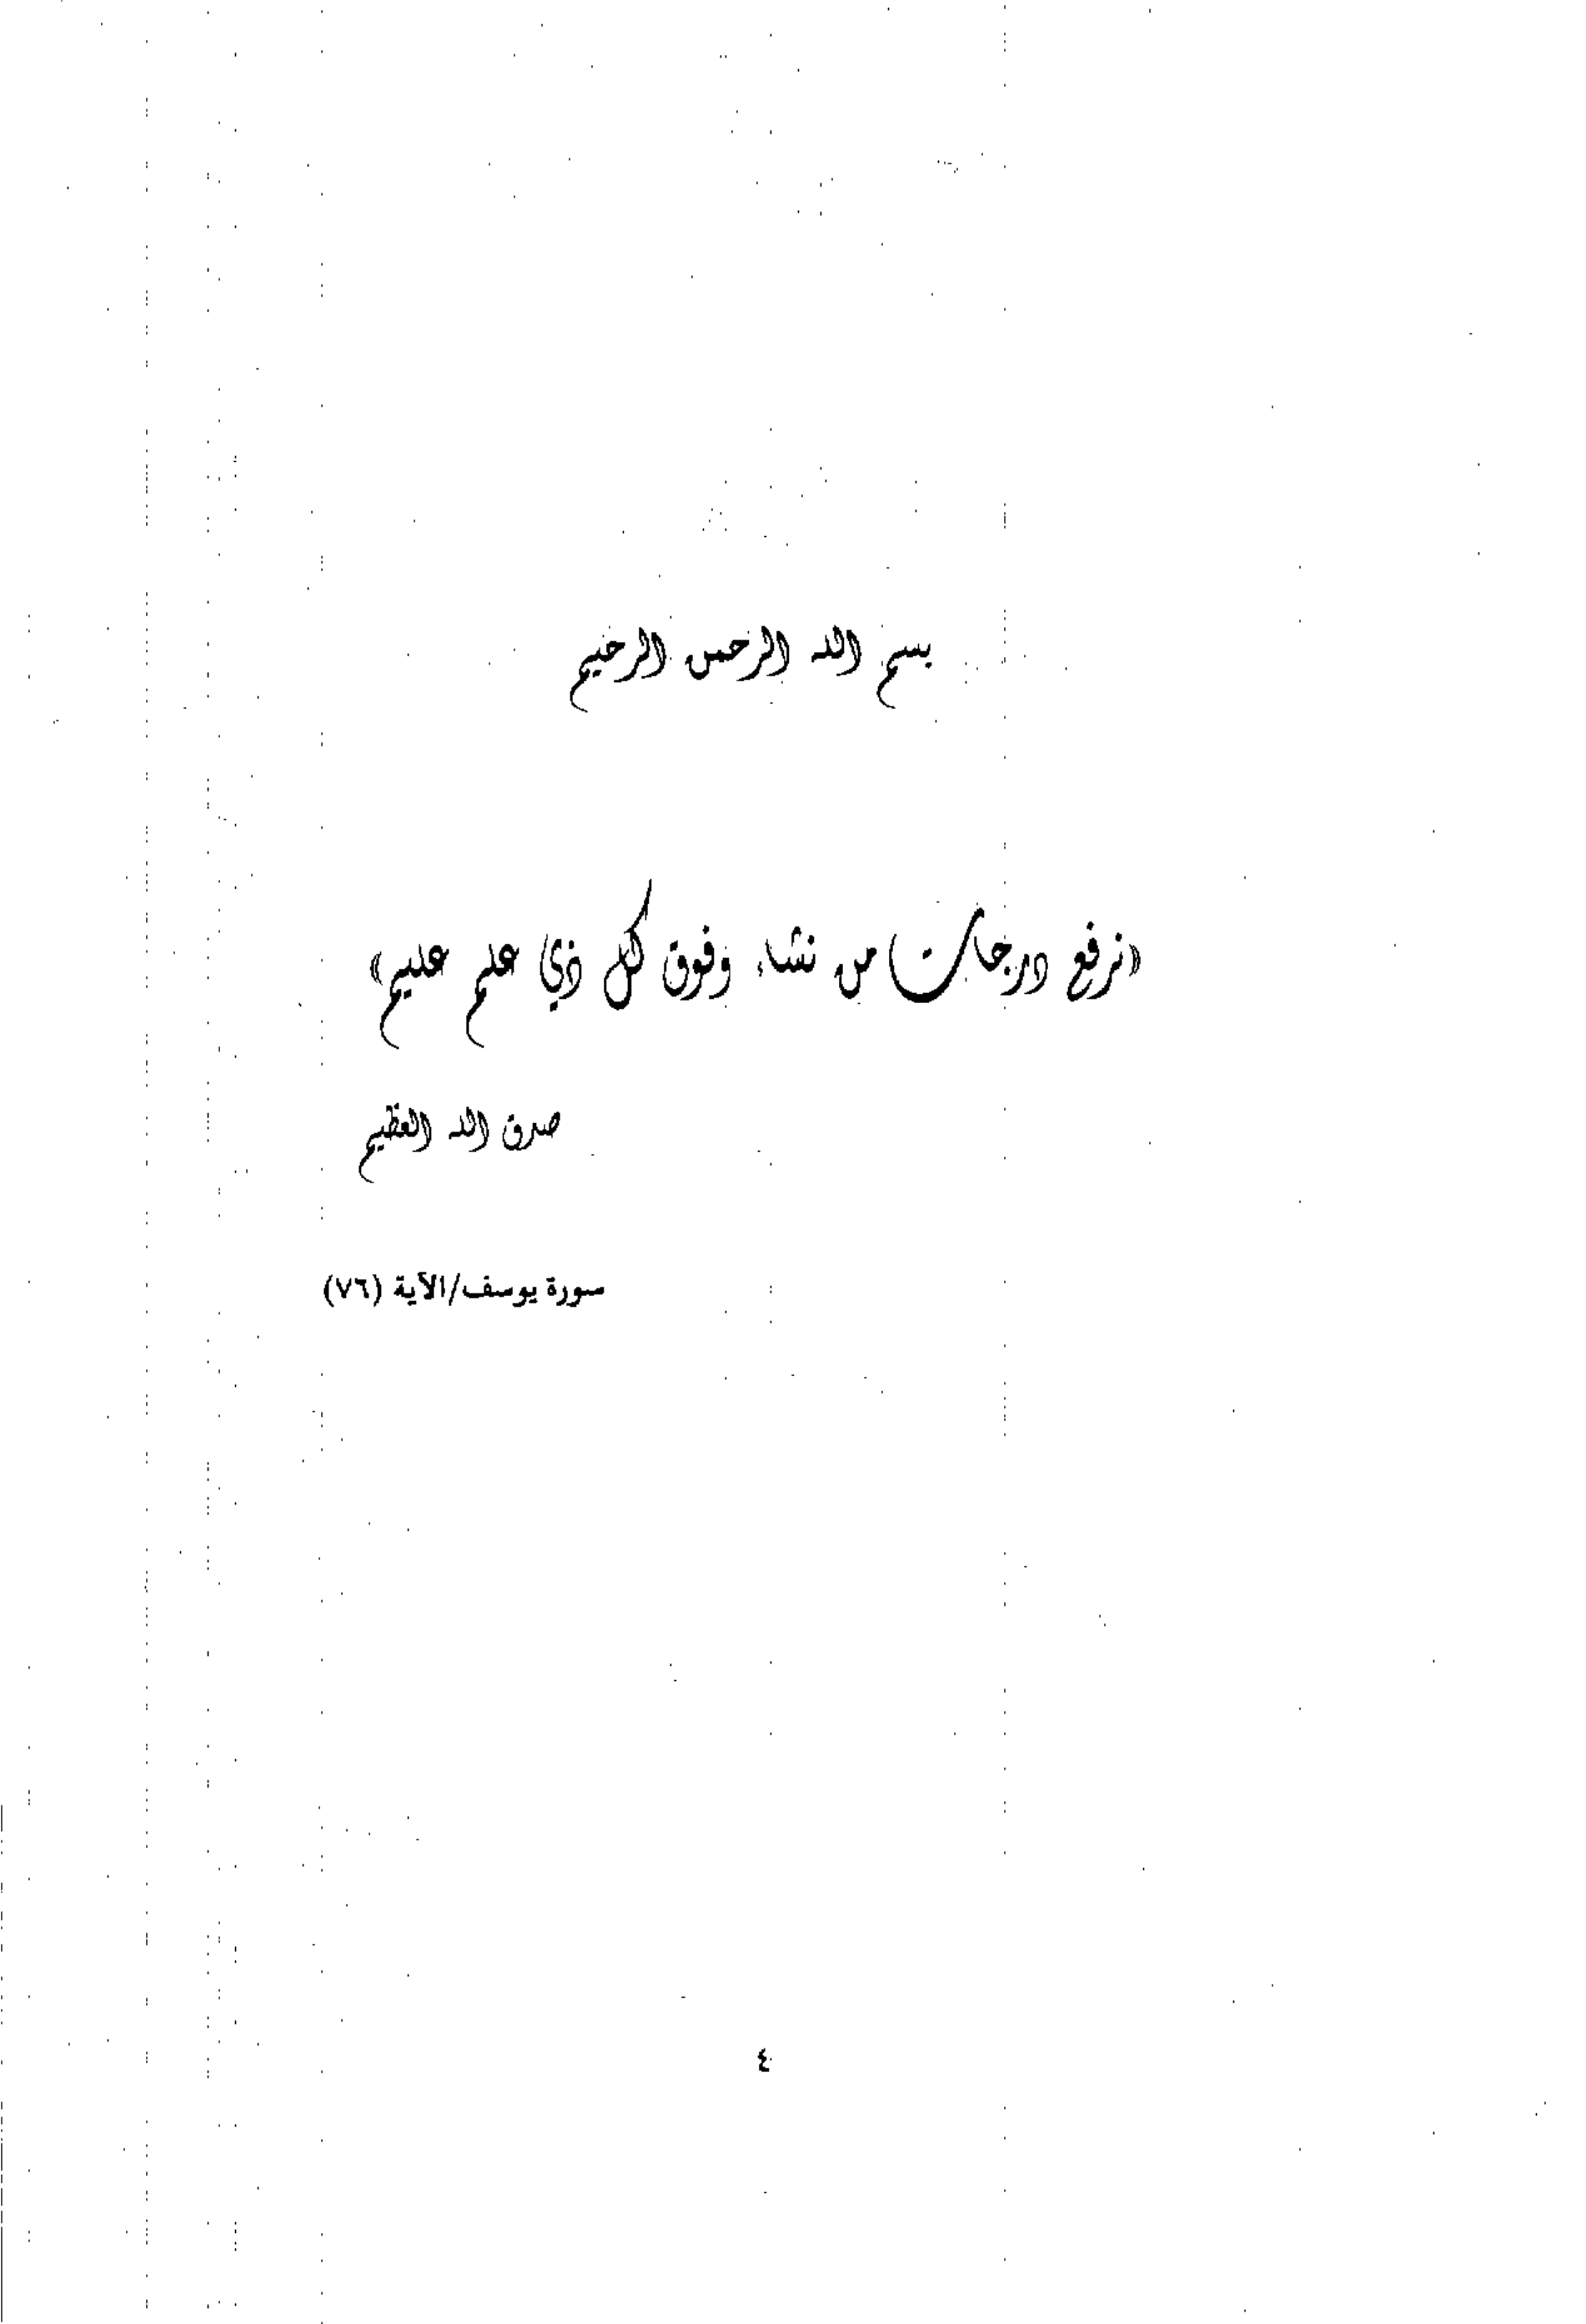 بسم الله الرحمن الرحيم
«نرفع درجات من نشاء وفوق كل ذي علم عليم»
صدق الله العظيم
سورة يوسف/الآية (٧٦)
٤